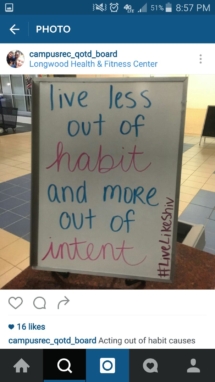 51% 8:57 PM
PHOTO
campusrec_qotd_board
Longwood Health & Fitness Center
live less
out of
habit
and more
out of
intent
#LiveLikeShiv
16 likes
campusrec_qotd_board Acting out of habit causes